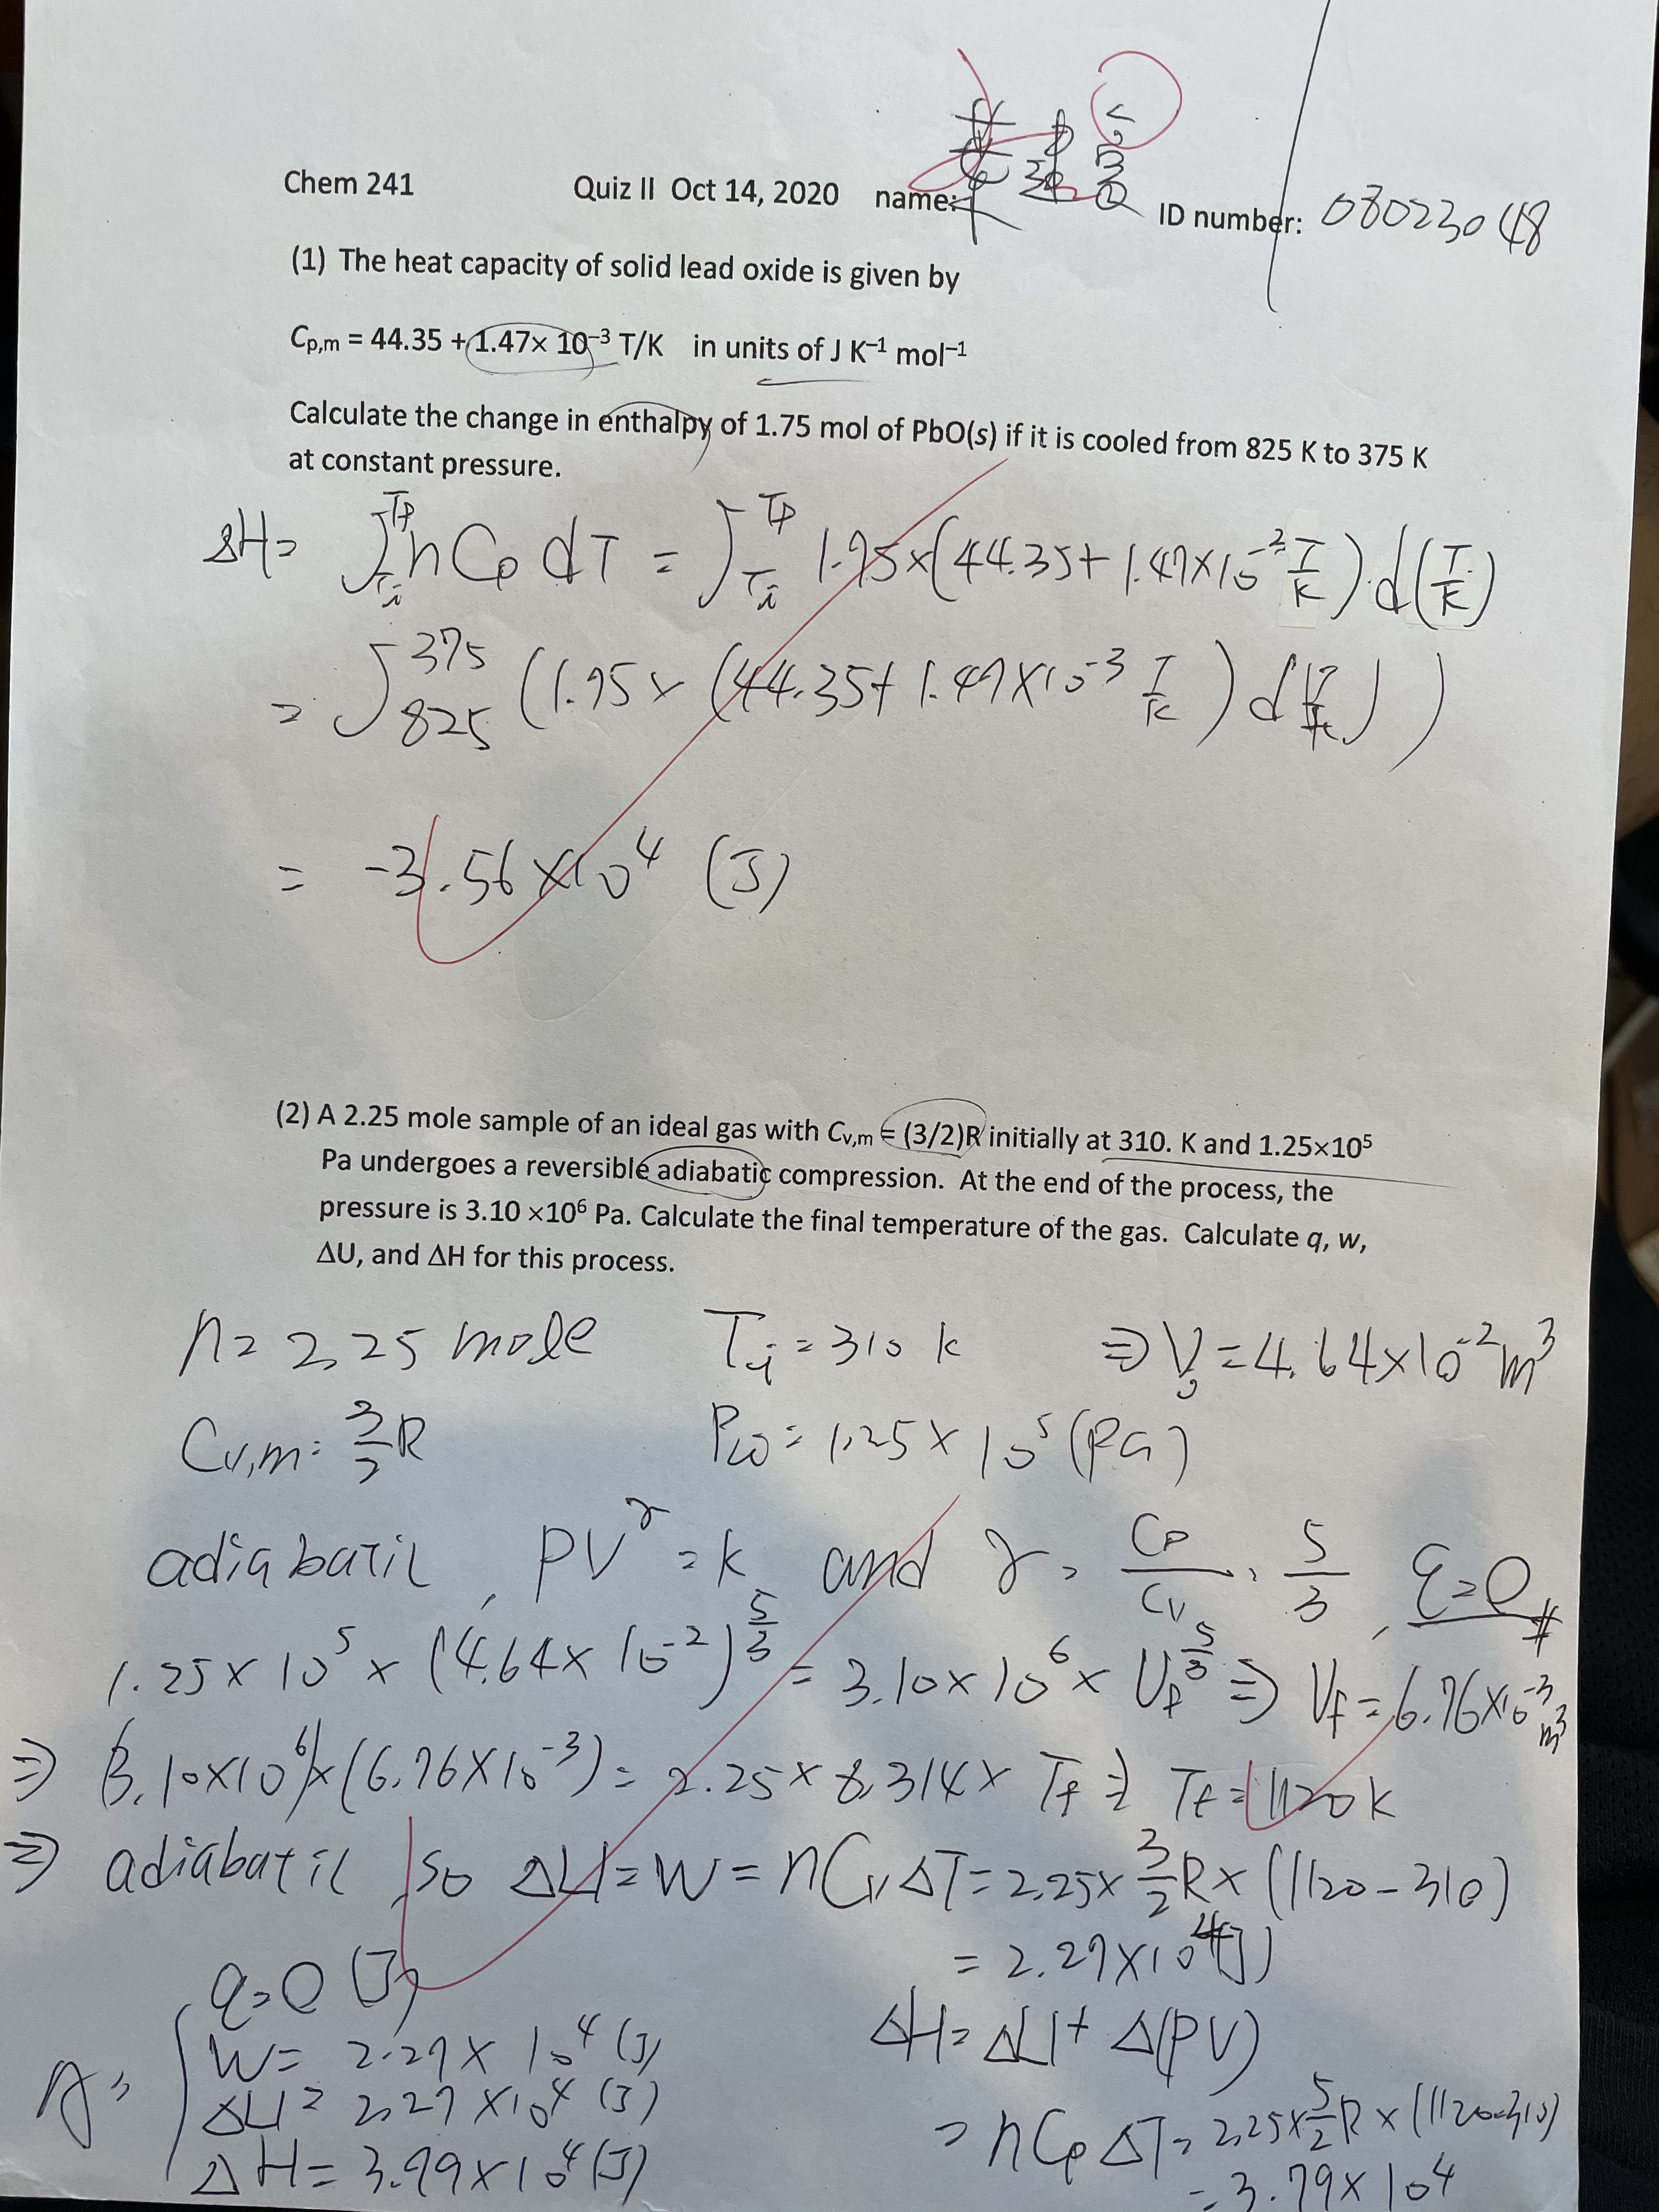 Chem 241 Quiz II Oct 14, 2020 name: ID number: 08023048
(1) The heat capacity of solid lead oxide is given by
Cp,m = 44.35 + 1.47× 10⁻³ T/K in units of J K⁻¹ mol⁻¹
Calculate the change in enthalpy of 1.75 mol of PbO(s) if it is cooled from 825 K to 375 K
at constant pressure.
ΔH = ∫_Ti^Tf n Cp dT = ∫_Ti^Tf 1.75×(44.35+1.47×10⁻² T/K)·d(T/K)
= ∫_825^375 (1.75× (44.35+1.47×10⁻³ T/K) d(T/K))
= -3.56×10⁴ (J)
(2) A 2.25 mole sample of an ideal gas with Cv,m = (3/2)R initially at 310. K and 1.25×10⁵
Pa undergoes a reversible adiabatic compression. At the end of the process, the
pressure is 3.10 ×10⁶ Pa. Calculate the final temperature of the gas. Calculate q, w,
ΔU, and ΔH for this process.
n= 2.25 mole Ti = 310 k ⇒ Vi = 4.64×10⁻² m³
Cv,m = 3/2 R = 1.25 × 10⁵ (Pa)
adiabatil, PV^γ = k and γ = Cp/Cv = 5/3, q=0 #
1.25 × 10⁵ × (4.64× 10⁻²)^5/3 = 3.10× 10⁶ × Vf^5/3 ⇒ Vf = 6.76×10⁻³ m³
⇒ (3.10×10⁶)×(6.76×10⁻³) = 2.25 × 8.314 × Tf ⇒ Tf = 1120 k
⇒ adiabatil, so ΔU = W = nCv ΔT = 2.25× 3/2 R × (1120-310)
= 2.27×10⁴ (J)
ΔH = ΔU + Δ(PV)
= nCp ΔT = 2.25× 5/2 R × (1120-310)
= 3.79 × 10⁴
A:
q=0 (J)
W = 2.27 × 10⁴ (J)
ΔU = 2.27 ×10⁴ (J)
ΔH = 3.79×10⁴ (J)